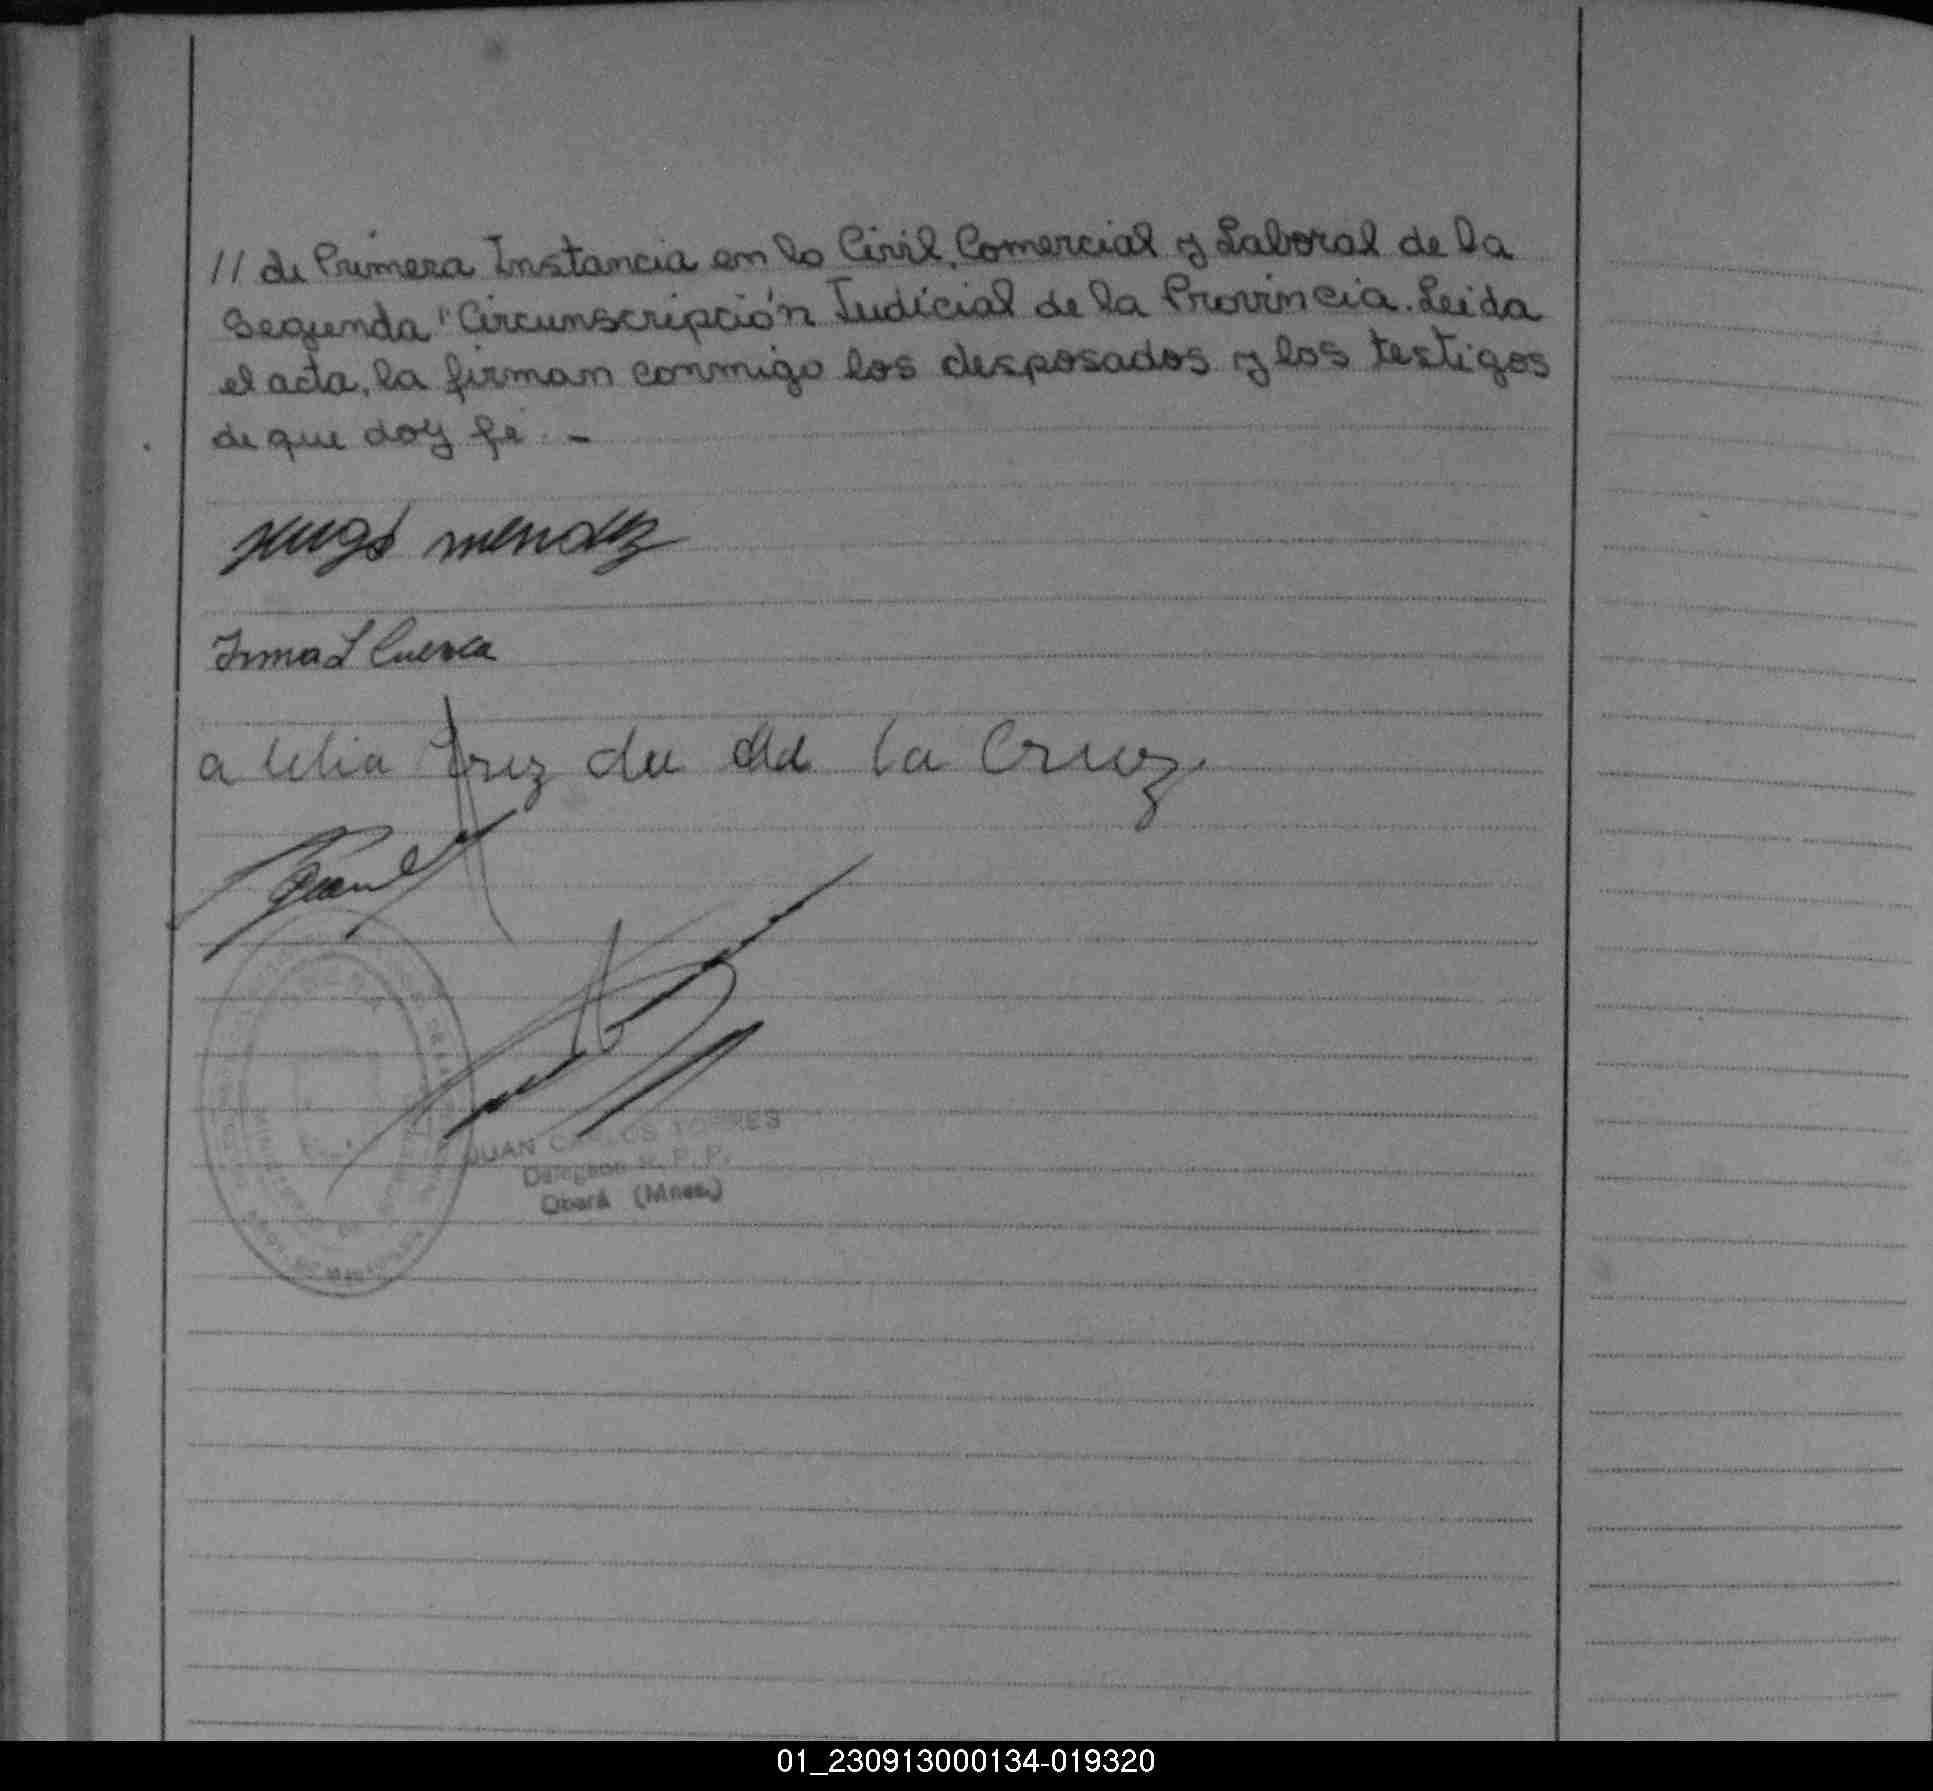 // de Primera Instancia en lo Civil, Comercial y Laboral de la
Segunda Circunscripción Judicial de la Provincia. Leida
el acta, la firman conmigo los desposados y los testigos
de que doy fe. -
Hugo mendez
Irma L Cuenca
de la Cruz
JUAN CARLOS TORRES
Oberá (Mnes.)
01_230913000134-019320